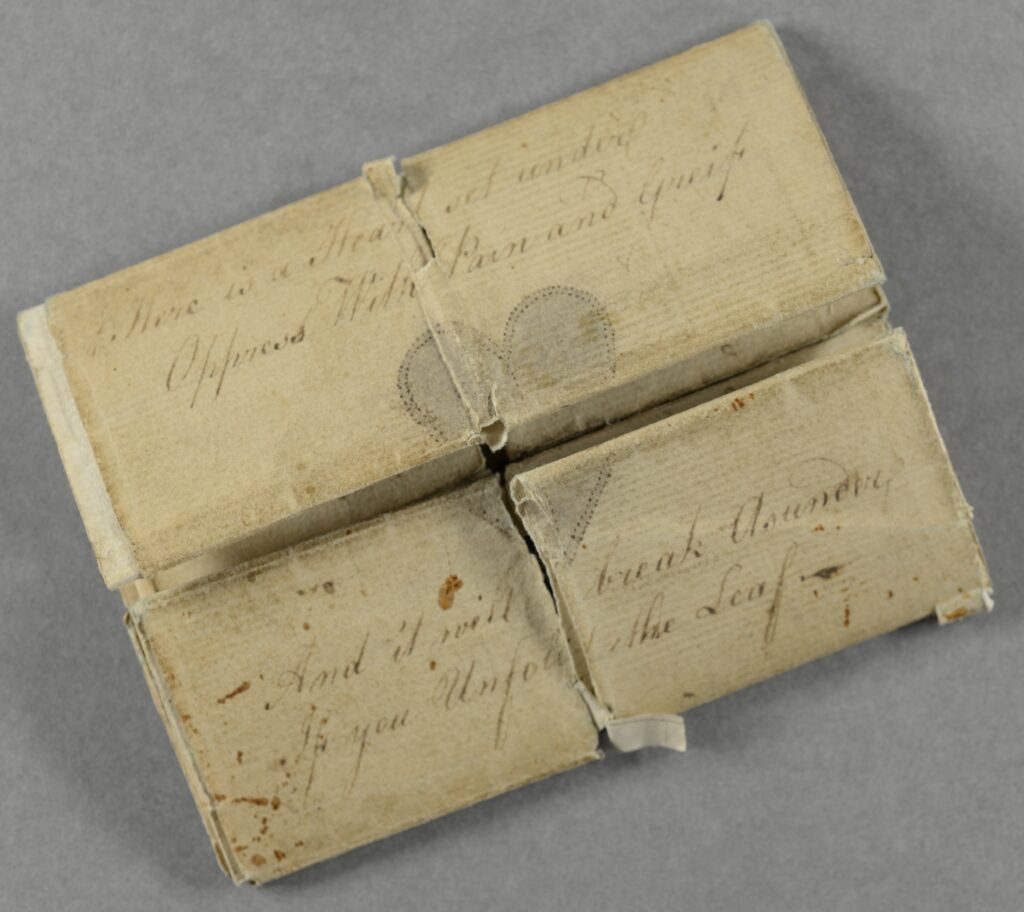 Here is a Heart set under
Oppress'd With Pain and Greif
And it will break Asunder,
If you Unfold the Leaf